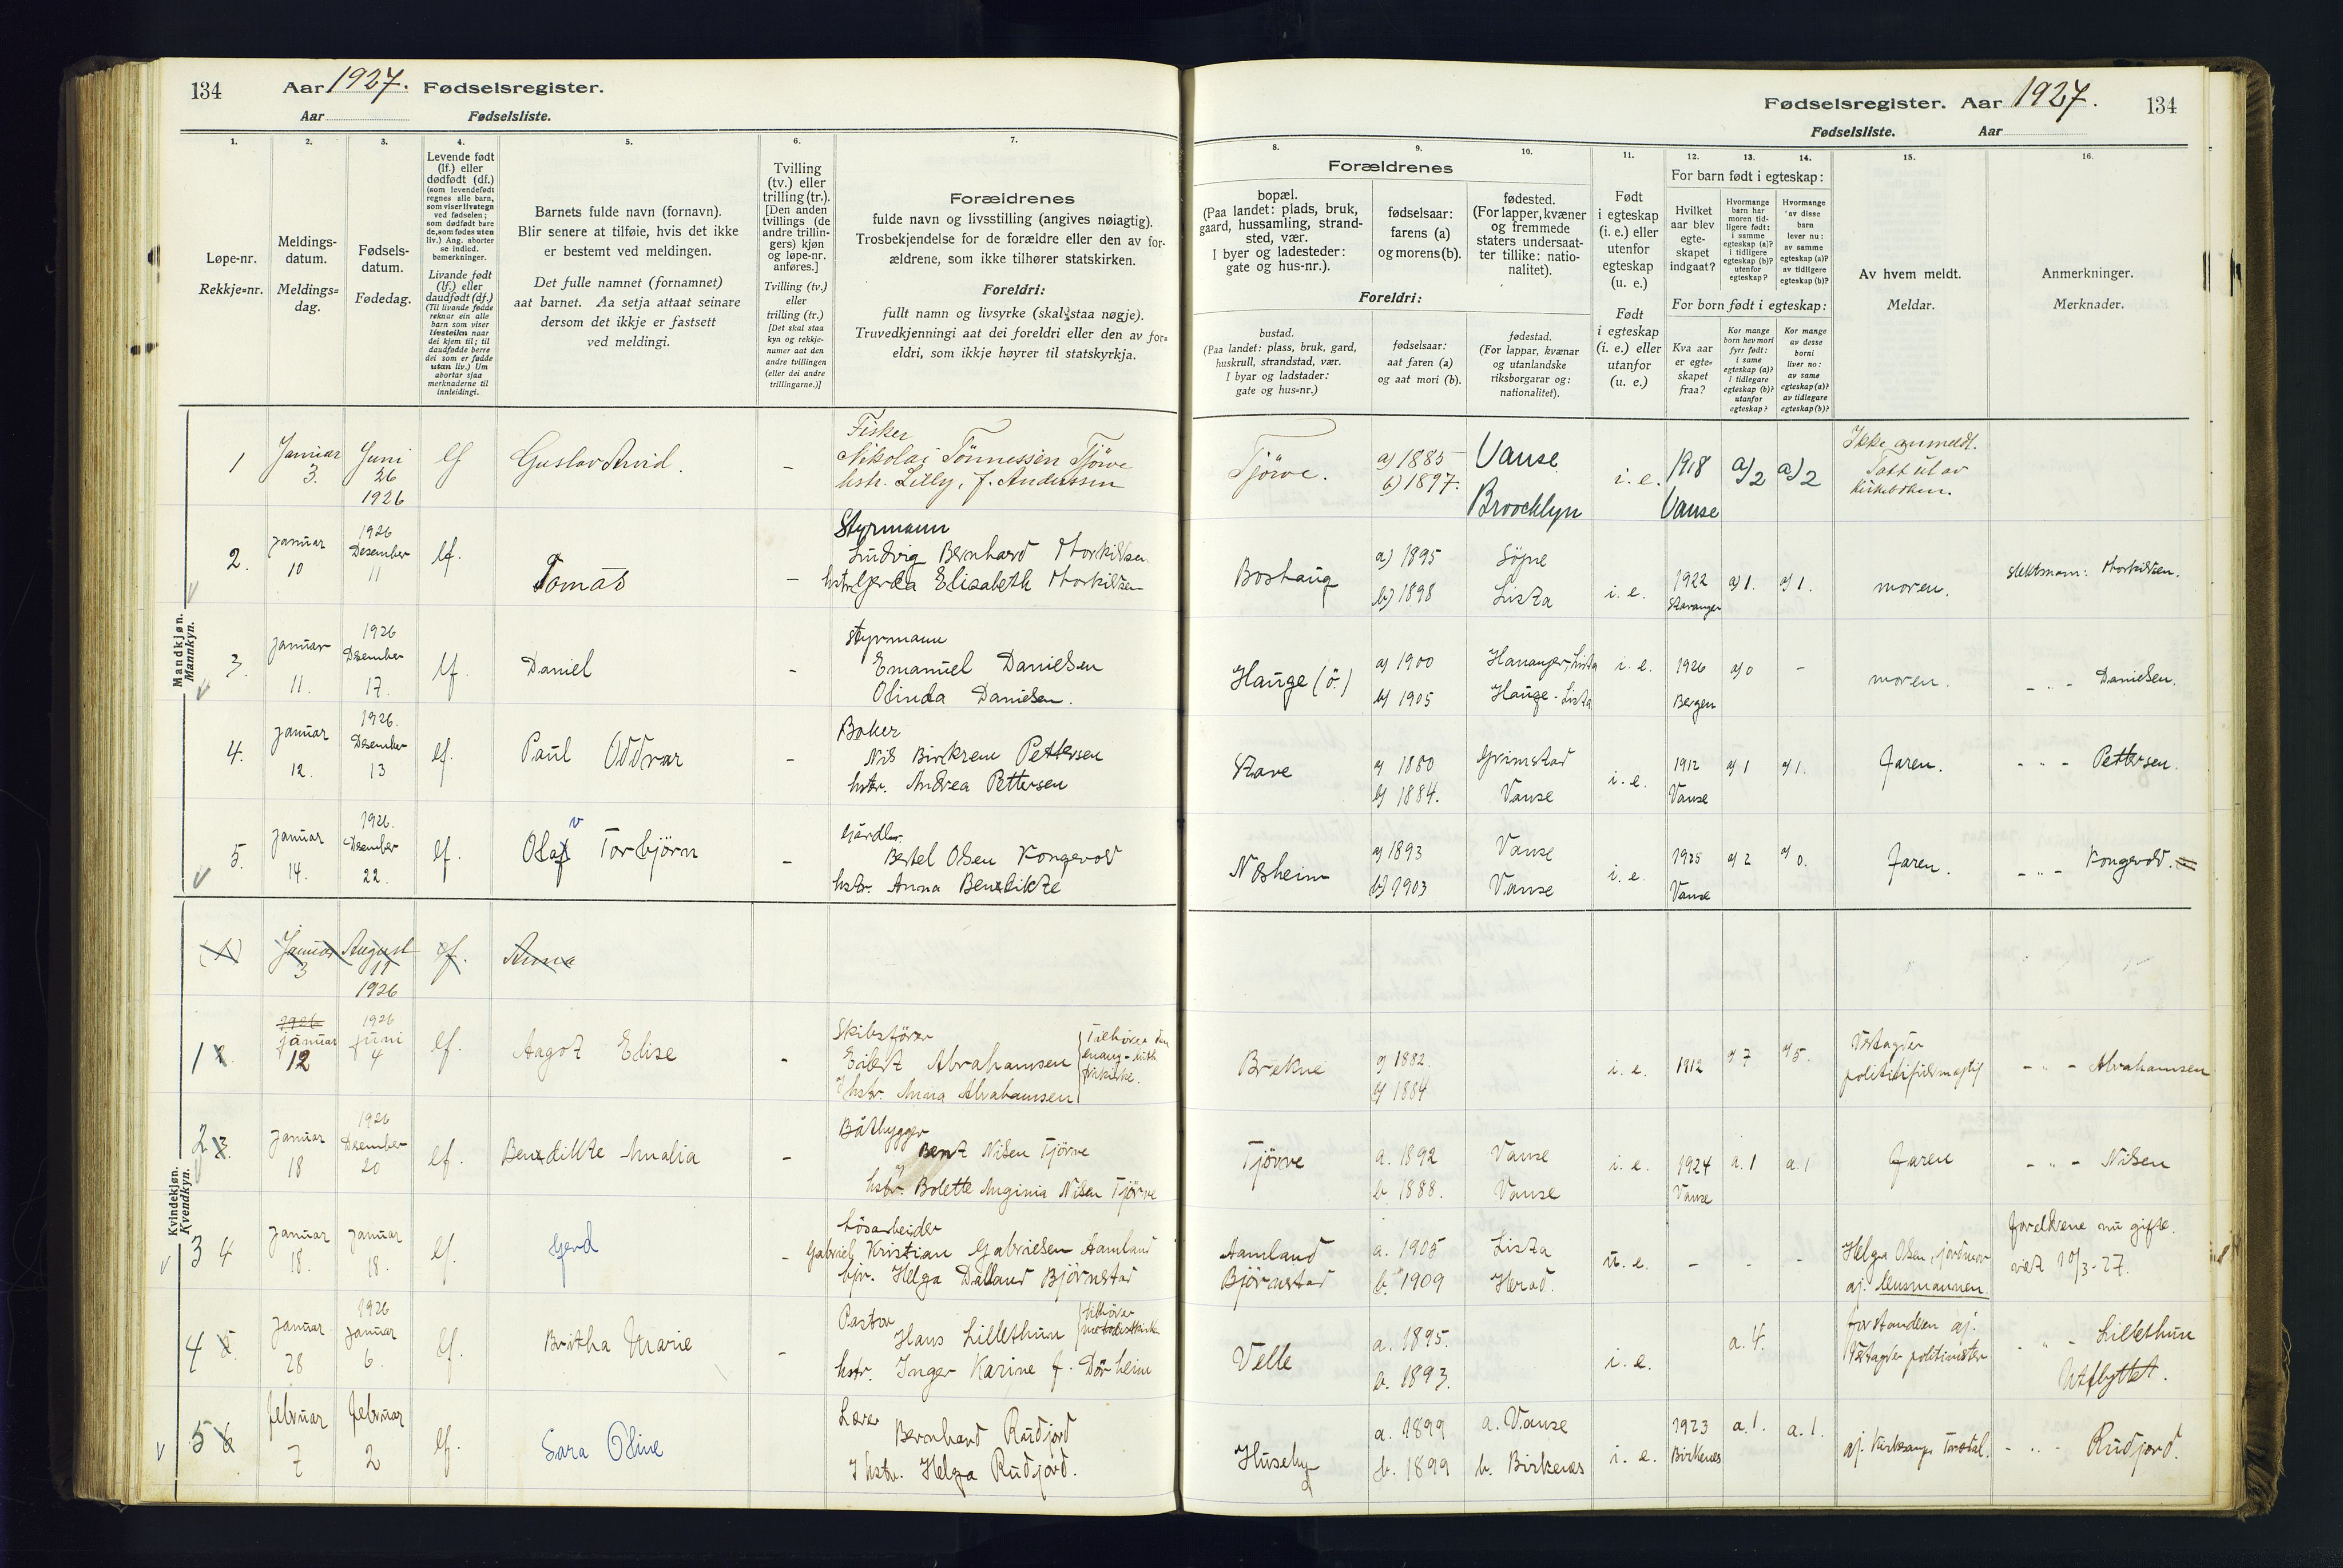 134 Aar 1927. Fødselsregister.
Aar Fødselsliste.
1. 2. 3. 4. 5. 6. 7.
Løpe-nr.
Rekkje=nr.
Meldings-
datum.
Meldings=
dag.
Fødsels-
datum.
Fødedag.
Levende født
(lf.) eller
dødfødt (df.)
(som levendefødt
regnes alle barn,
som viser livstegn
ved fødselen;
som dødfødt bare
de, som fødes uten
liv.) Ang. aborter
se indled.
bemerkninger.
Livande født
(lf.) eller
daudfødt (df.)
(Til livande fødde
reknar ein alle
barn som viser
livsteikn naar
dei kjem til; til
daudfødde berre
dei som er fødde
utan liv.) Um
abortar sjaa
merknaderne til
innleidingi.
Barnets fulde navn (fornavn).
Blir senere at tilføie, hvis det ikke
er bestemt ved meldingen.
Det fulle namnet (fornamnet)
aat barnet. Aa setja attaat seinare
dersom det ikkje er fastsett
ved meldingi.
Tvilling
(tv.) eller
trilling (tr.).
[Den anden
tvillings (de
andre trillin-
gers) kjøn
og løpe-nr.
anføres.]
Tvilling (tv.)
eller
trilling (tr.)
[Det skal staa
kyn og rekkje-
numer aat den
andre tvillingen
(eller dei andre
trillingarne.)]
Forældrenes
fulde navn og livsstilling (angives nøiagtig).
Trosbekjendelse for de forældre eller den av for-
ældrene, som ikke tilhører statskirken.
Foreldri:
fullt namn og livsyrke (skal staa nøgje).
Truvedkjenningi aat dei foreldri eller den av for=
eldri, som ikkje høyrer til statskyrkja.
Mandkjøn.
Mannkyn.
1 Januar 3. Juni 26 1926 lf Gustav Arvid. -
Fisker
Nikolai Tönnessen Tjörve
hstr. Lilly, f. Andersen
2. januar 10 1926 Desember 11 lf. Tomas -
Styrmann
Ludvig Bernhard Thorkildsen
hstr. Gerda Elisabeth Thorkildsen
3. januar 11. 1926 Desember 17. lf. Daniel -
Styrmann
Emanuel Danielsen
Olinda Danielsen.
4. januar 12. 1926. Desember 13 lf. Paul Oddvar -
Baker
Nils Birkrem Pettersen
hstr. Andrea Pettersen
5. januar 14. 1926. Desember 22. lf. Olav Torbjörn -
Gårdbr.
Bertel Olsen Kongevold
hstr. Anna Bendikte
Kvindekjøn.
Kvendkyn.
(1) Januar 3 August 11 1926 lf. Anna
1 2. 1926 januar 12 1926 juni 4 lf. Aagot Elise -
Skibsförer
Eilert Abrahamsen
hstr. Anna Abrahamsen
Tilhörer den
evang-luth
frikirke.
2 3. januar 18 1926 Desember 20 lf. Bendikte Amalia -
Båtbygger
Bent Nilsen Tjörve
hstr. Bolette Anginia Nilsen Tjörve
3 4 januar 18. januar 18. lf. Gerd -
Lösarbeider
Gabriel Kristian Gabrielsen Aamland
pi. Helga Dalland Björnstad
4 5. januar 28 1926 januar 6. lf. Britha Marie -
Pastor
Hans Lillethun
hstr. Inger Karine f. Dörheim
tilhörer
metodistkirken
5 6 februar 7 februar 2 lf. Sara Oline
Lærer
Bernhard Rudjord
hstr. Helga Rudjord.
Fødselsregister. Aar 1927. 134
Fødselsliste. Aar
8. 9. 10. 11. 12. 13. 14. 15. 16.
Forældrenes
bopæl.
(Paa landet: plads, bruk,
gaard, hussamling, strand-
sted, vær.
I byer og ladesteder:
gate og hus-nr.).
fødselsaar:
farens (a)
og morens (b).
fødested.
(For lapper, kvæner
og fremmede
staters undersaat-
ter tillike: natio-
nalitet).
Foreldri:
bustad.
(Paa landet: plass, bruk, gard,
huskrull, strandstad, vær.
I byar og ladstader:
gate og hus=nr.)
fødselsaar:
aat faren (a)
og aat mori (b).
fødestad.
(For lappar, kvænar
og utanlandske
riksborgarar og:
nationalitet).
Født
i egteskap
(i. e.) eller
utenfor
egteskap
(u. e.)
Født
i egteskap
(i. e.) eller
utanfor
(u. e.)
For barn født i egteskap:
Hvilket
aar blev
egte-
skapet
indgaat?
Hvormange
barn har
moren tid-
ligere født:
i samme
egteskap (a)?
i tidligere
egteskap (b)?
utenfor
egteskap?
Hvormange
av disse
barn
lever nu:
av samme
egteskap (a)?
av tidligere
egteskap (b)?
For born født i egteskap:
Kva aar
er egte-
skapet
fraa?
Kor mange
born hev mori
fyrr født:
i same
egteskap (a)?
i tidlegare
egteskap (b)?
utanfor
egteskap?
Kor mange
av desse
borni
liver no:
av same
egteskap (a)?
av tidlegare
egteskap (b)?
Av hvem meldt.
Meldar.
Anmerkninger.
Merknader.
Tjörve. a) 1885 b) 1897. Vanse Brooklyn i. e. 1918 Vanse a) 2 a) 2
Ikke anmeldt.
Tatt ut av
kirkeboken.
Boshaug a) 1895 b) 1898 Söpne Lista i. e. 1922 Stavanger a) 1. a) 1. moren. slektsnavn: Thorkildsen.
Hauge (ö.) a) 1900 b) 1905 Hananger, Lista Hauge - Lista i. e. 1926 Bergen a) 0 - moren. - " - Danielsen.
Stave a) 1880 b) 1884. Grimstad Vanse i. e. 1912 Vanse a) 1 a) 1. Faren. - " - Pettersen.
Nesheim a) 1893 b) 1903 Vanse Vanse i. e. 1925 Vanse a) 2 a) 0. Faren. - " - Kongevold.
Brekne a) 1882. b) 1884 i. e. 1912 a) 7 a) 5. - " - Abrahamsen
Tjörve a. 1892 b. 1888. Vanse Vanse i. e. 1924 Vanse a. 1 a. 1 Faren - " - Nilsen
Aamland Björnstad a. 1905 b. 1909 Lista Herad. u. e. - - -
Helga Olsen, jordmor
av. lensmannen.
foreldrene nu gifte.
viet 10/3-27.
Velle a. 1895. b. 1893. i. e. a. 4.
forstanderen av.
Vestagder politimester
- " - Lillethun
Utflyttet.
Huseby a. 1899 b. 1899 a. Vanse b. Birkenes i. e. 1923 Birkenes a. 1. a. 1. - " - Rudjord.